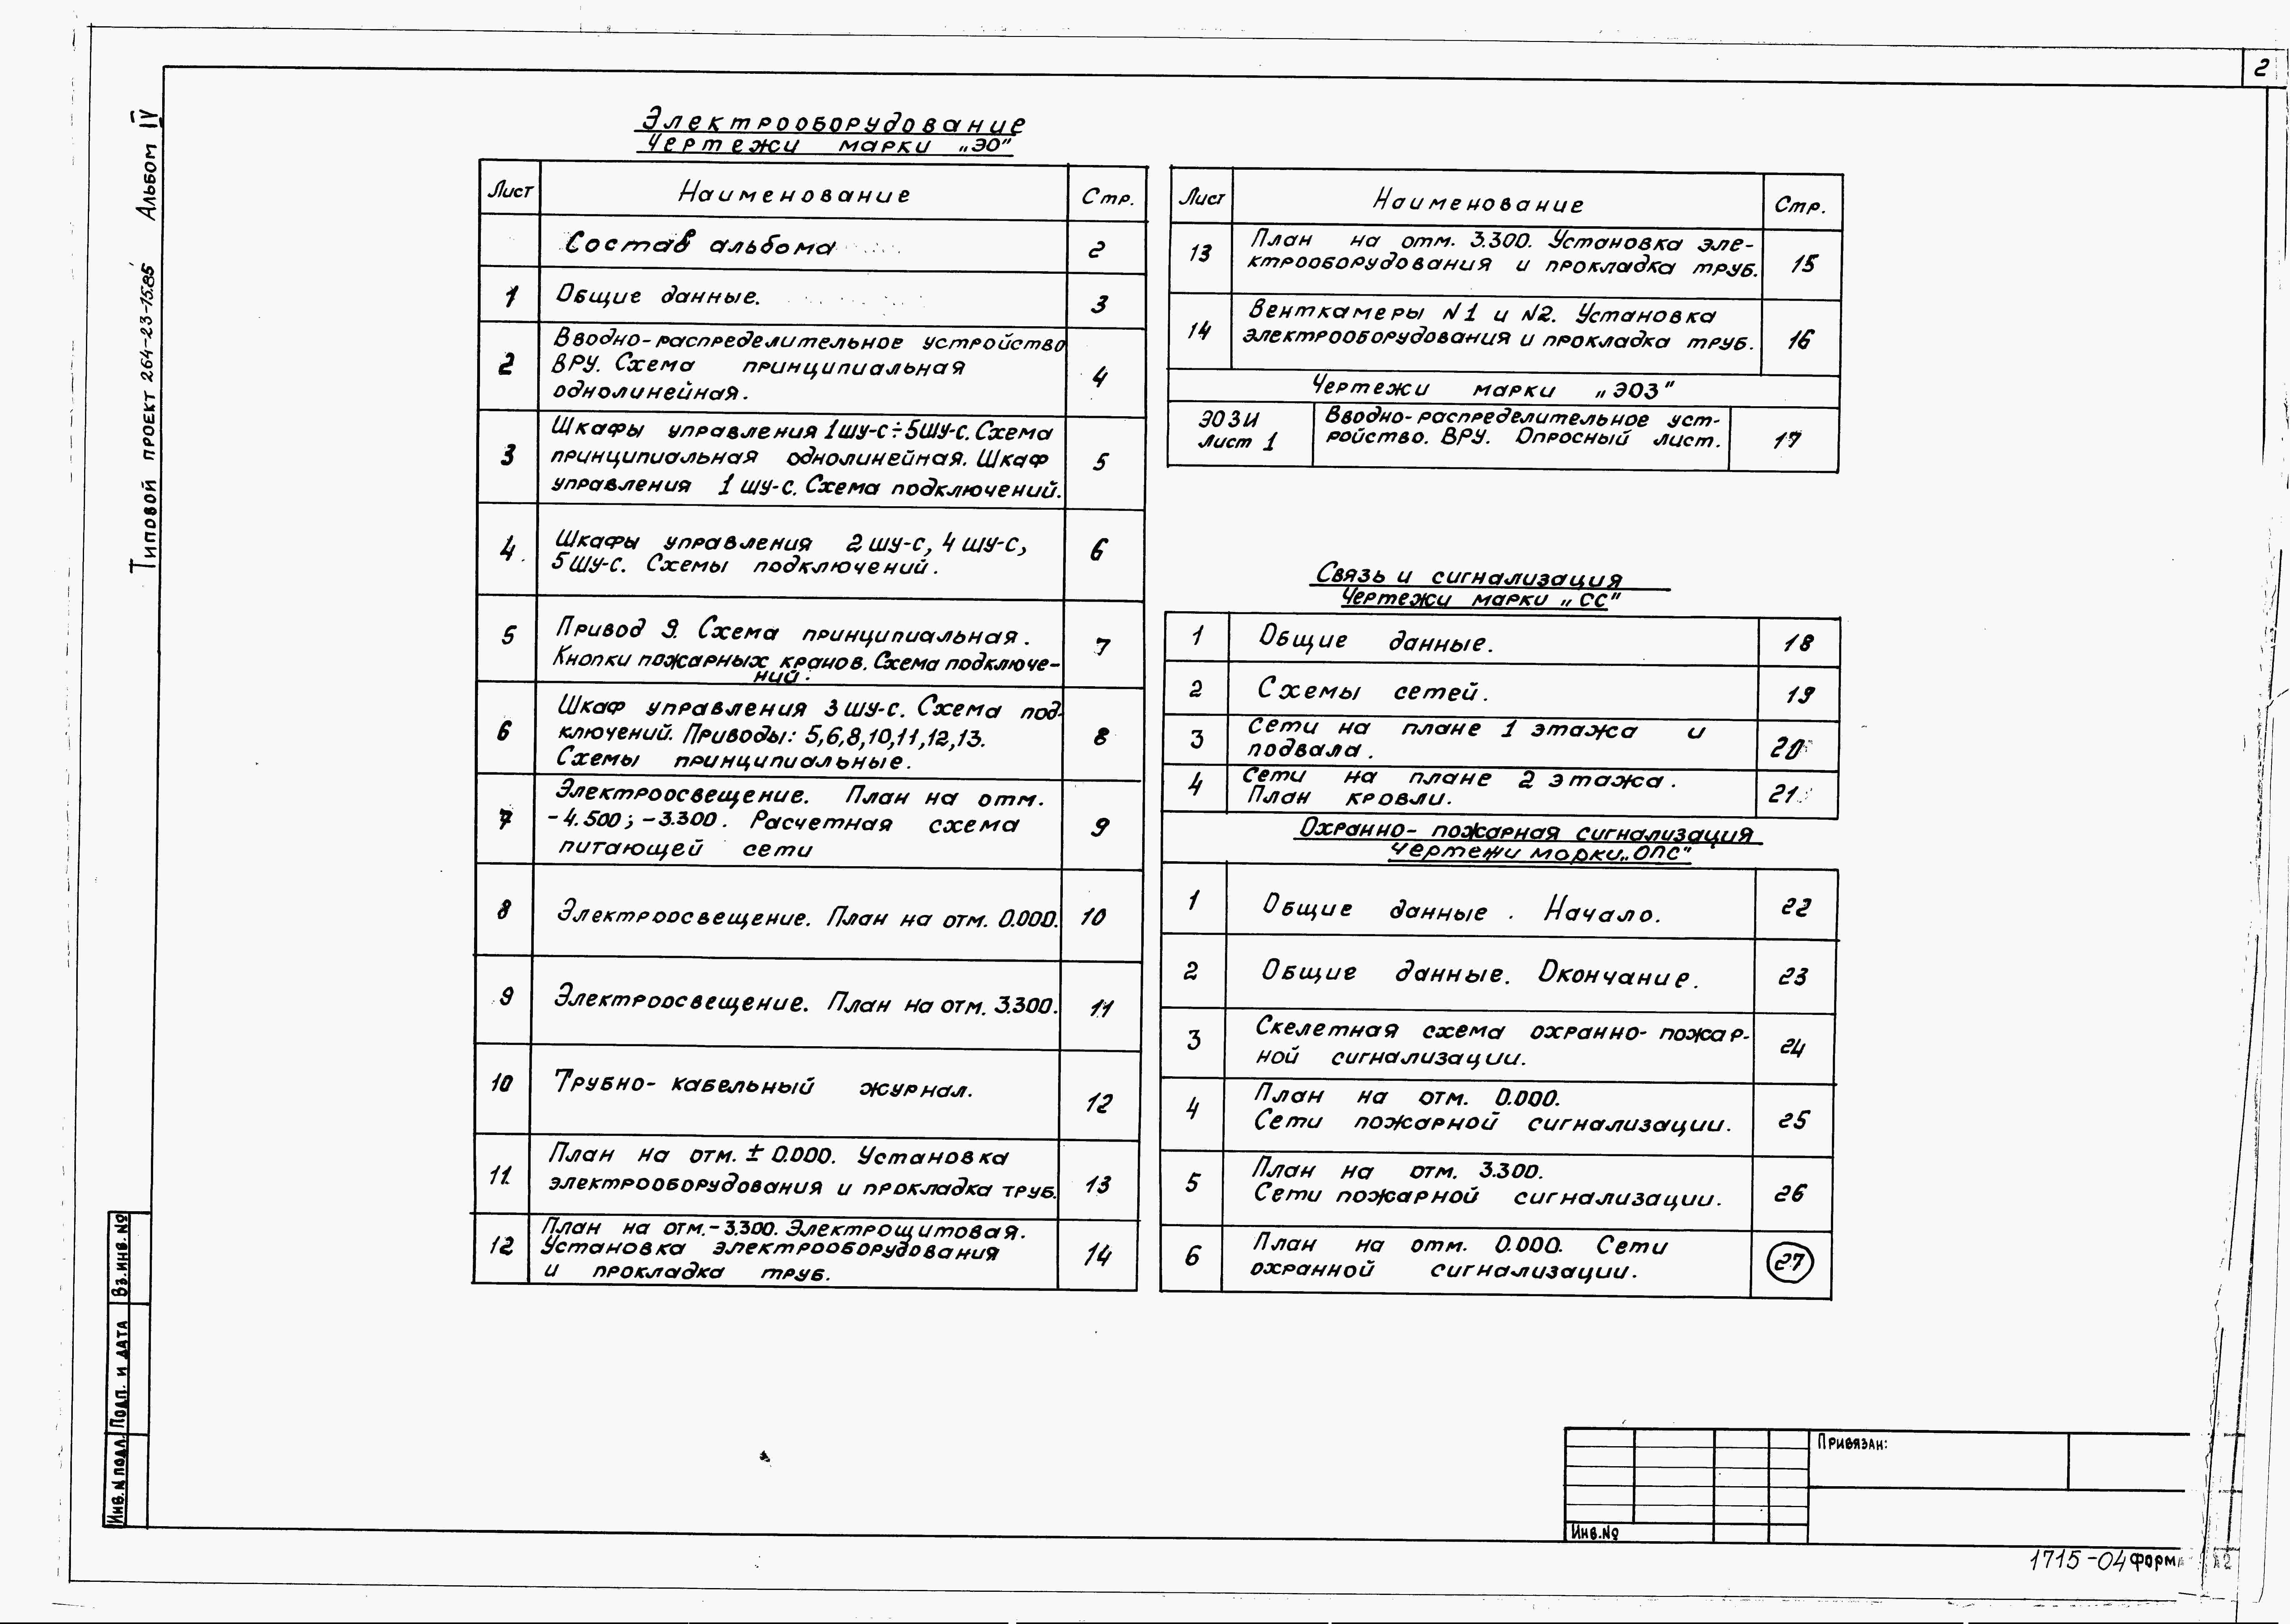 2
Типовой проект 264-23-15.85 Альбом IV
Электрооборудование
Чертежи марки „ЭО"
Лист Наименование Стр.
Состав альбома 2
1 Общие данные. 3
2 Вводно-распределительное устройство
ВРУ. Схема принципиальная
однолинейная. 4
3 Шкафы управления 1шу-с÷5шу-с. Схема
принципиальная однолинейная. Шкаф
управления 1 шу-с. Схема подключений. 5
4 Шкафы управления 2 шу-с, 4 шу-с,
5шу-с. Схемы подключений. 6
5 Привод 9. Схема принципиальная.
Кнопки пожарных кранов. Схема подключе-
ний. 7
6 Шкаф управления 3 шу-с. Схема под-
ключений. Приводы: 5,6,8,10,11,12,13.
Схемы принципиальные. 8
7 Электроосвещение. План на отм.
-4.500; -3.300. Расчетная схема
питающей сети 9
8 Электроосвещение. План на отм. 0.000. 10
9 Электроосвещение. План на отм. 3.300. 11
10 Трубно-кабельный журнал. 12
11 План на отм. ± 0.000. Установка
электрооборудования и прокладка труб. 13
12 План на отм.-3.300. Электрощитовая.
Установка электрооборудования
и прокладка труб. 14
Лист Наименование Стр.
13 План на отм. 3.300. Установка эле-
ктрооборудования и прокладка труб. 15
14 Венткамеры N1 и N2. Установка
электрооборудования и прокладка труб. 16
Чертежи марки „ЭОЗ"
ЭОЗИ Вводно-распределительное уст-
лист 1 ройство. ВРУ. Опросный лист. 17
Связь и сигнализация
Чертежи марки „СС"
1 Общие данные. 18
2 Схемы сетей. 19
3 Сети на плане 1 этажа и
подвала. 20
4 Сети на плане 2 этажа.
План кровли. 21
Охранно-пожарная сигнализация
Чертежи марки „ОПС"
1 Общие данные. Начало. 22
2 Общие данные. Окончание. 23
3 Скелетная схема охранно-пожар-
ной сигнализации. 24
4 План на отм. 0.000.
Сети пожарной сигнализации. 25
5 План на отм. 3.300.
Сети пожарной сигнализации. 26
6 План на отм. 0.000. Сети
охранной сигнализации. 27
Инв.N подл. Подп. и дата Вз.инв.№
Привязан:
Инв.№
1715-04 Форма А2